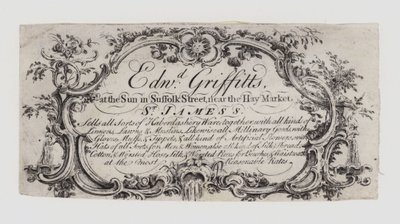 Edwd. Griffitts,
at the Sun in Suffolk Street, near the Hay Market,
St. JAMES'S.
Sells all Sorts of Haberdashery Ware, together with all kind of
Linnens, Lawns & Muslins, Likewise all Millinary Goods, with
Gloves, Muffs & Tippets, & all kind of Artificial Flowers, with
Hats of all Sorts for Men & Women, also all kind of Silk, Thread,
Cotton, & Worsted Hose, Silk & Worsted Peices for Breeches & Waistcoats
at the most Reasonable Rates